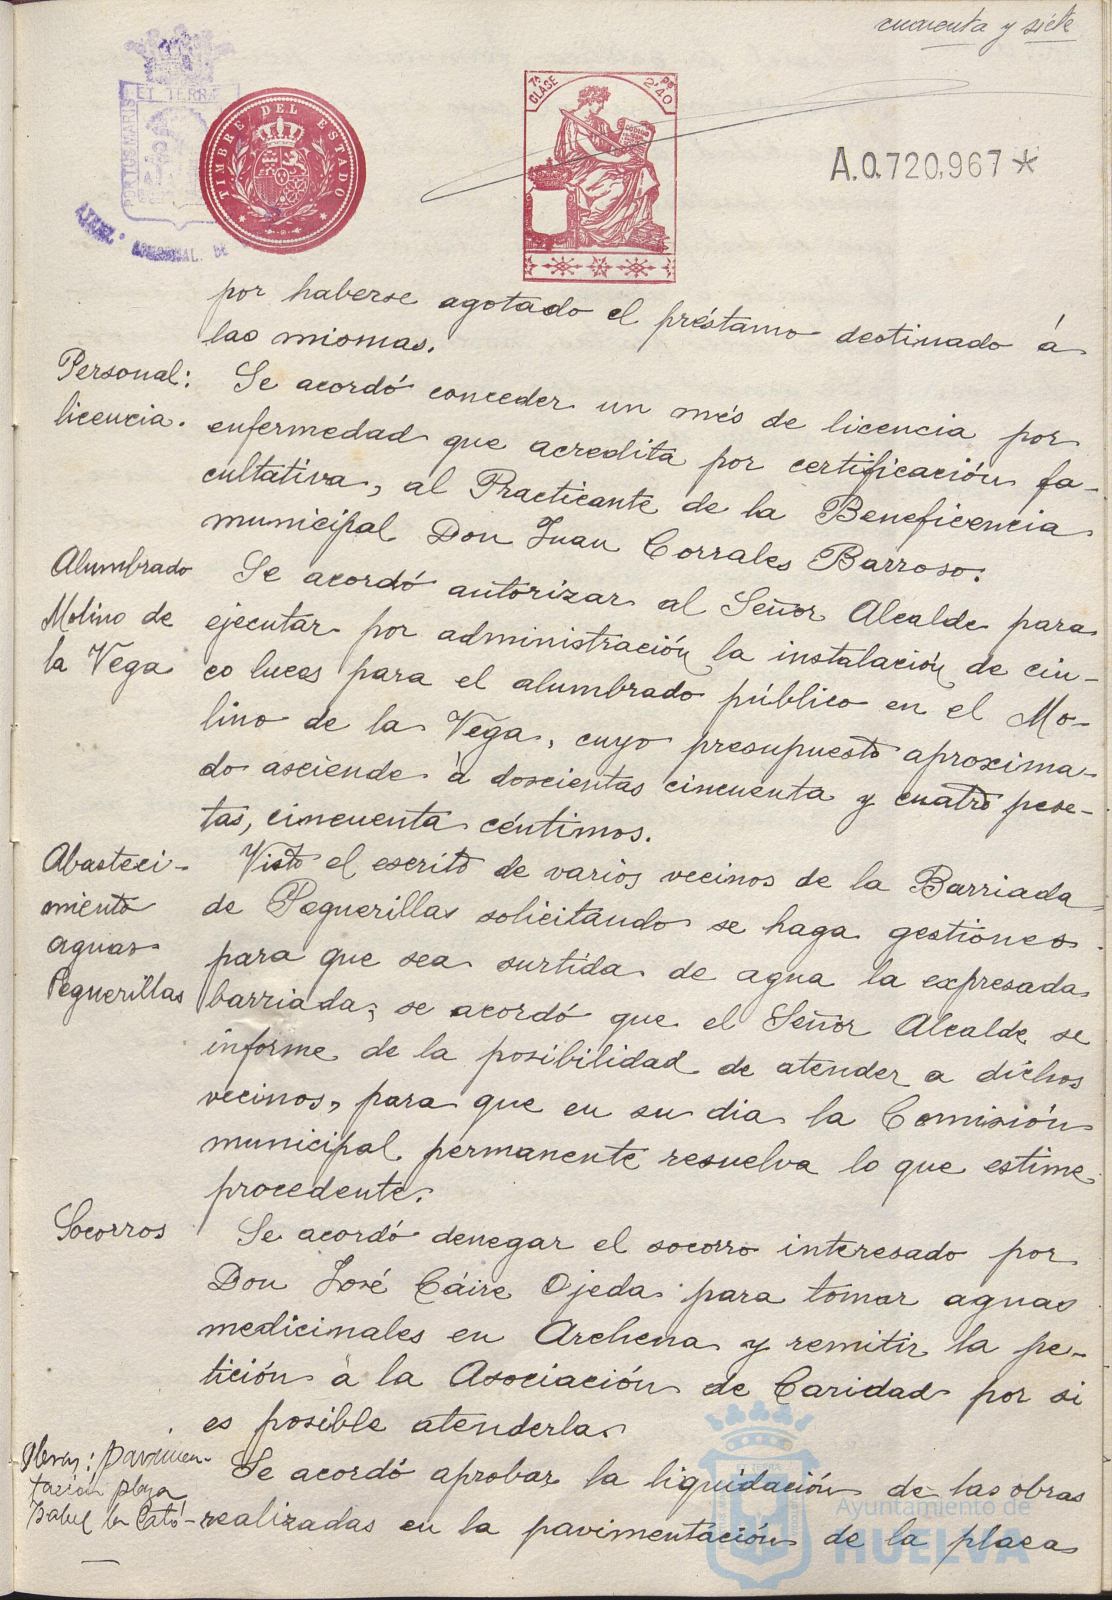 cuarenta y siete
ET TERRA
PORTUS MARIS
TIMBRE DEL ESTADO
7ª CLASE
2'40 Ps
A.0.720,967*
por haberse agotado el préstamo destinado á
las mismas.
Personal:
licencia.
Se acordó conceder un més de licencia por
enfermedad que acredita por certificación fa-
cultativa, al Practicante de la Beneficencia
municipal Don Juan Corrales Barroso.
Alumbrado
Molino de
la Vega
Se acordó autorizar al Señor Alcalde para
ejecutar por administración la instalación de cin-
co luces para el alumbrado público en el Mo-
lino de la Vega, cuyo presupuesto aproxima-
do asciende à doscientas cincuenta y cuatro pese-
tas, cincuenta céntimos.
Abasteci-
miento
aguas
Peguerillas
Visto el escrito de varios vecinos de la Barriada
de Peguerillas solicitando se haga gestiones
para que sea surtida de agua la expresada
barriada; se acordó que el Señor Alcalde se
informe de la posibilidad de atender a dichos
vecinos, para que en su dia la Comisión
municipal permanente resuelva lo que estime
procedente.
Socorros
Se acordó denegar el socorro interesado por
Don José Cáire Ojeda para tomar aguas
medicinales en Archena y remitir la pe-
tición à la Asociación de Caridad por si
es posible atenderla.
Obras: pavimen-
tación plaza
Isabel la Cató-
Se acordó aprobar la liquidación de las obras
realizadas en la pavimentación de la plaza
Ayuntamiento de
HUELVA